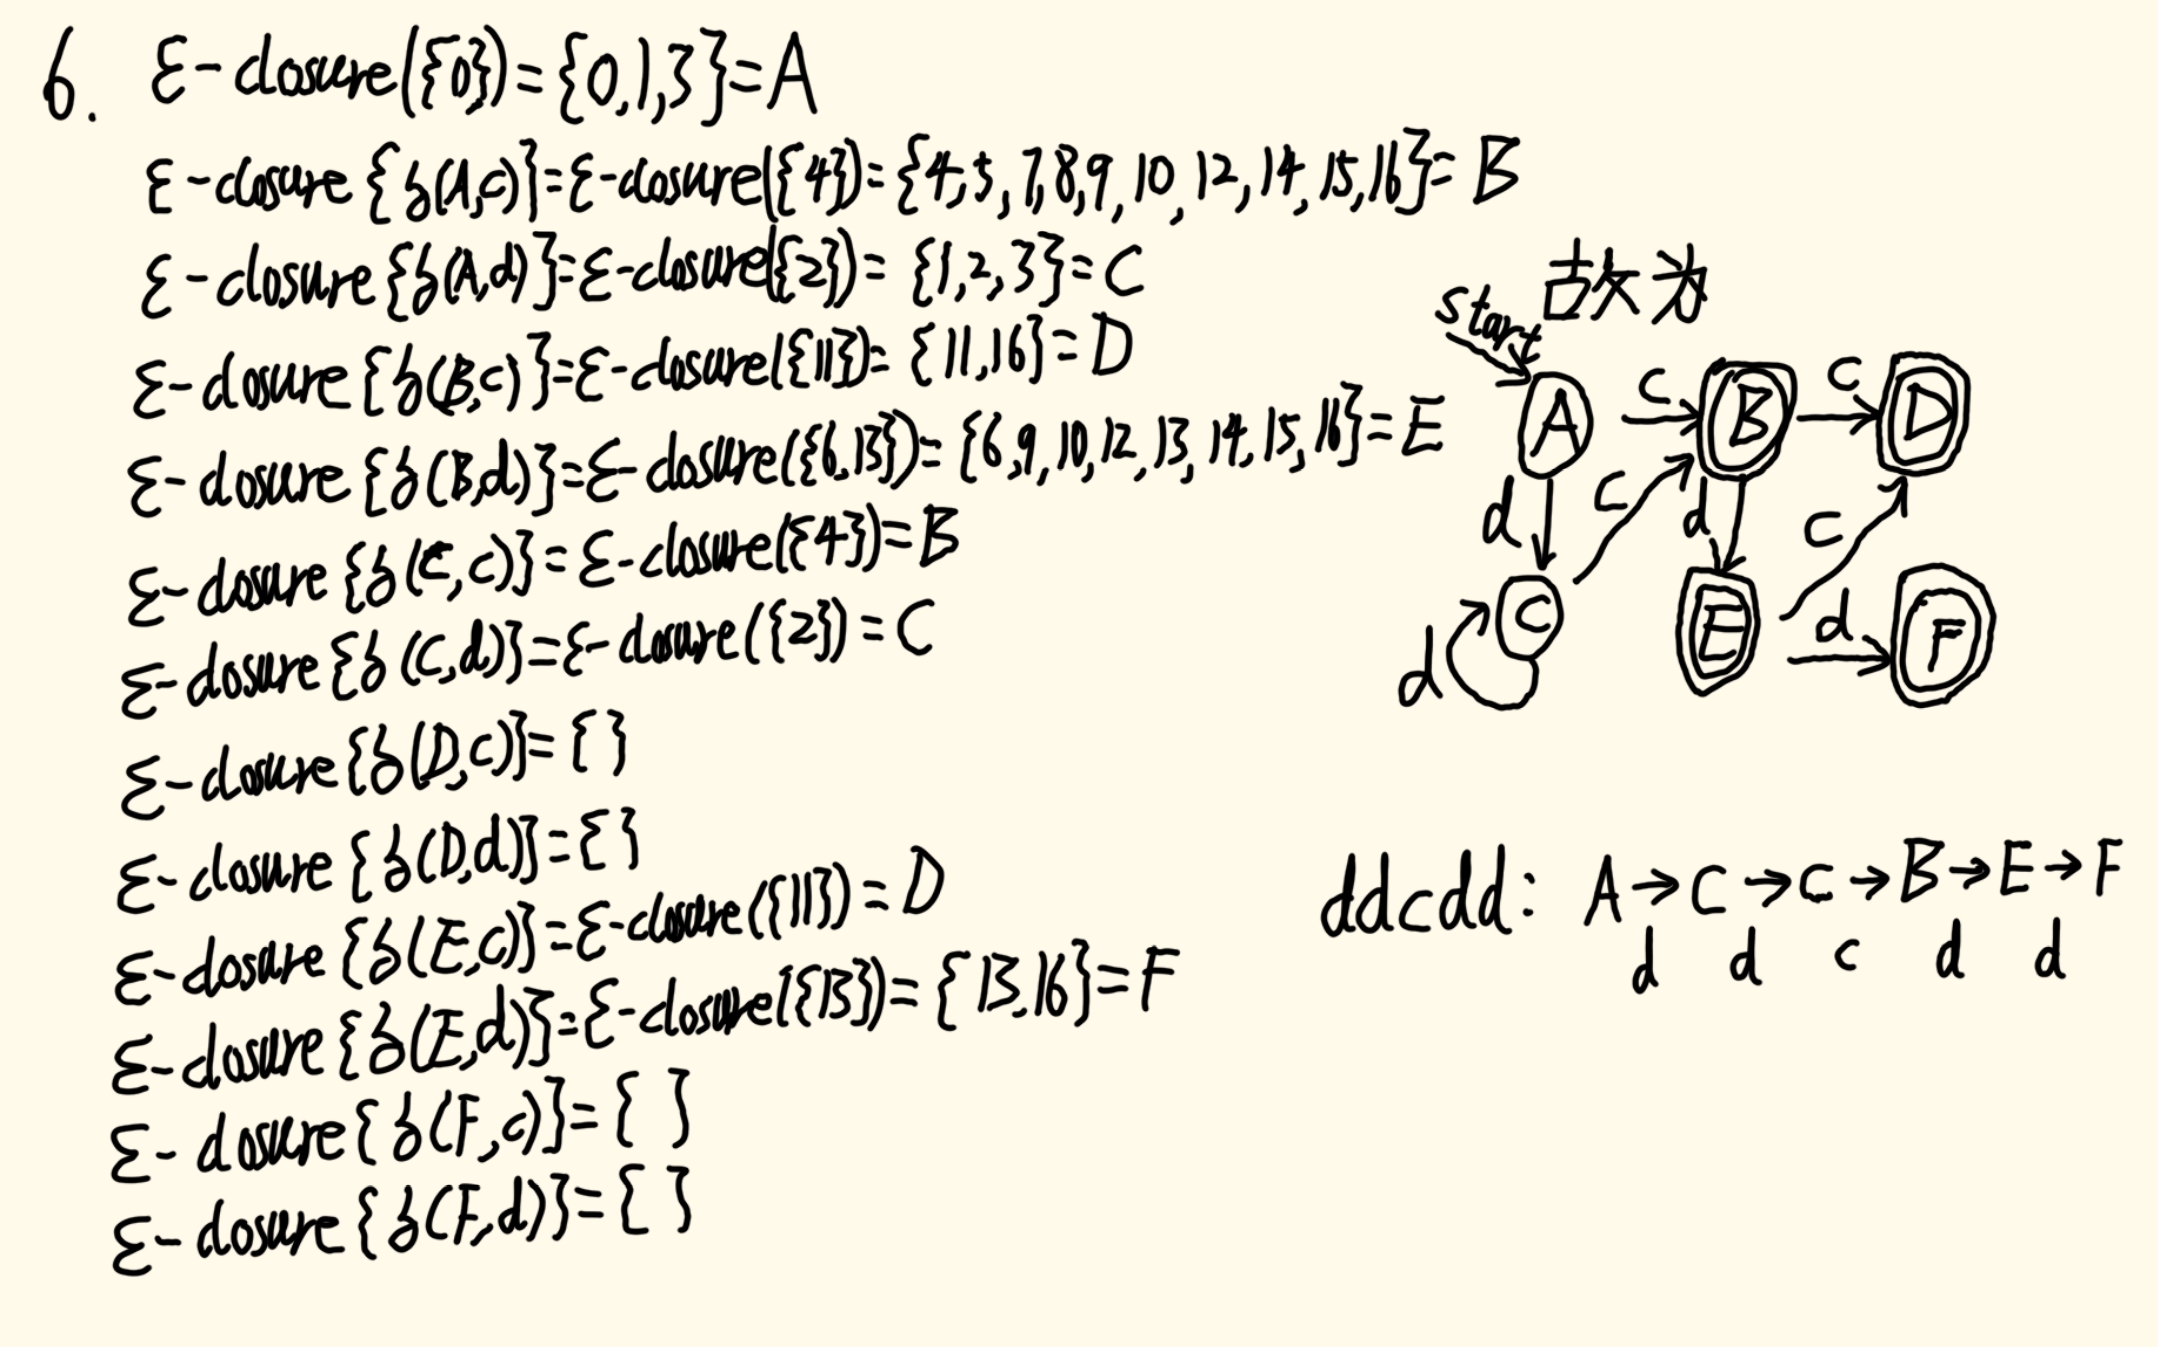 6. ε-closure({0})={0,1,3}=A
ε-closure{δ(A,c)}=ε-closure({4})={4,5,7,8,9,10,12,14,15,16}=B
ε-closure{δ(A,d)}=ε-closure({2})={1,2,3}=C
ε-closure{δ(B,c)}=ε-closure({11})={11,16}=D
ε-closure{δ(B,d)}=ε-closure({6,13})={6,9,10,12,13,14,15,16}=E
ε-closure{δ(C,c)}=ε-closure({4})=B
ε-closure{δ(C,d)}=ε-closure({2})=C
ε-closure{δ(D,c)}={ }
ε-closure{δ(D,d)}={ }
ε-closure{δ(E,c)}=ε-closure({11})=D
ε-closure{δ(E,d)}=ε-closure({13})={13,16}=F
ε-closure{δ(F,c)}={ }
ε-closure{δ(F,d)}={ }
故为
start
A c B c D
d c d c
C E d F
d
ddcdd: A→C→C→B→E→F
d d c d d